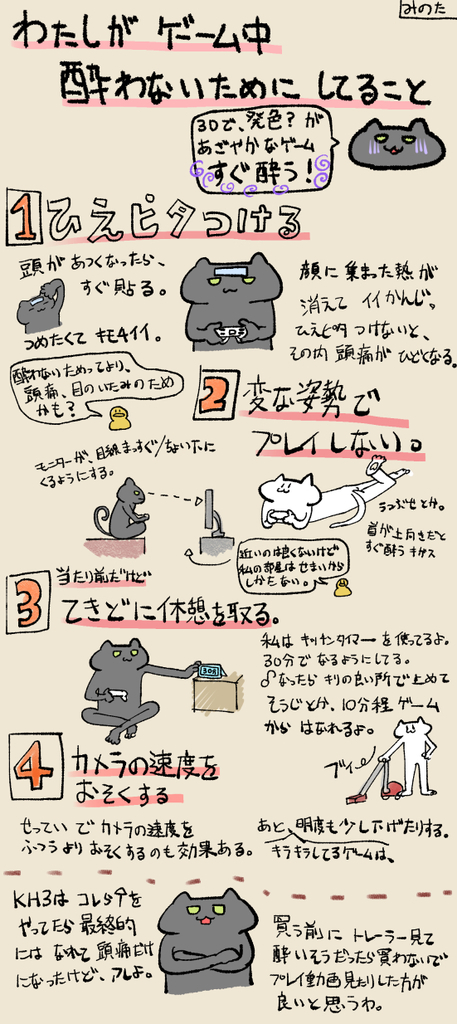 みのた
わたしが ゲーム中
酔わないために してること
3Dで、発色?が
あざやかなゲーム
すぐ酔う!
1 ひえピタつける
頭が あつくなったら、
すぐ貼る。
つめたくて キモチイイ。
顔に集まった熱が
消えて イイかんじ。
ひえピタ つけないと、
その内 頭痛が ひどくなる。
酔わないためってより、
頭痛、目のいたみのため
かも?
2 変な姿勢で
プレイしない。
モニターが、目線まっすぐ/ちょい下に
くるようにする。
うつぶせとか。
首が上向きだと
すぐ酔う
近いのは良くないけど
私の部屋はせまいから
しかたない。
3 当たり前だけど
てきどに休憩を取る。
30分
私は キッチンタイマーを使ってるよ。
30分で なるようにしてる。
なったら キリの良い所で止めて
そうじとか、10分程 ゲーム
から はなれるよ。
ブイー
4 カメラの速度を
おそくする
せってい で カメラの速度を
ふつうより おそくするのも効果ある。
あと、明度も少し下げたりする。
キラキラしてるゲームは、
KH3は コレら↑を
やってたら 最終的
には なれて 頭痛だけ
になったけど、アレよ。
買う前に トレーラー見て
酔いそうだったら買わないで
プレイ動画見たりした方が
良いと思うわ。